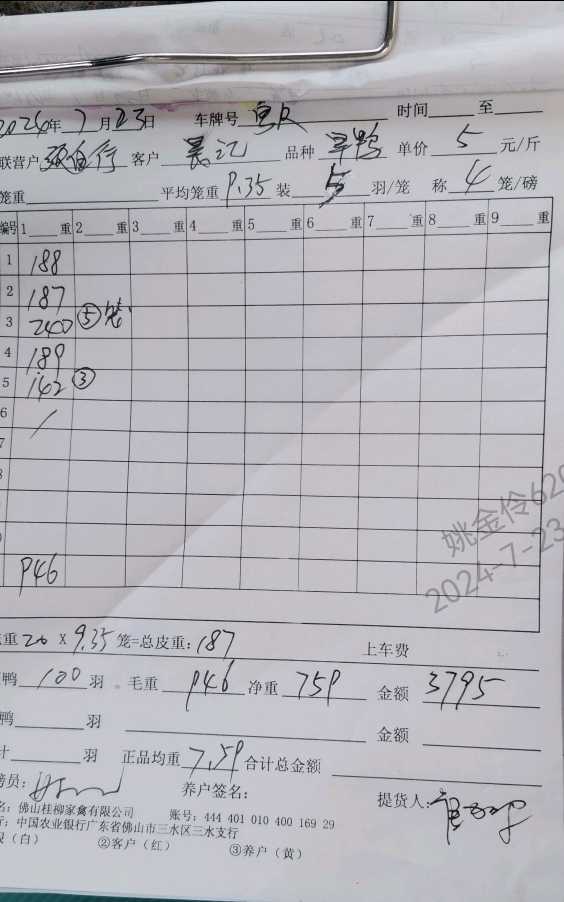 2024年7月23日 车牌号 时间 至
联营户 客户 吴记 品种 旱鸭 单价 5 元/斤
笼重 平均笼重 9.35 装 5 羽/笼 称 4 笼/磅
编号 1 重 2 重 3 重 4 重 5 重 6 重 7 重 8 重 9 重
1 188
2 187
3 240 ⑤笼
4 189
5 142 ③
6 /
7
946
姚金伶620
2024-7-23
重 20 X 9.35 笼=总皮重: 187 上车费
鸭 100 羽 毛重 946 净重 759 金额 3795
鸭 羽 金额
计 羽 正品均重 7.59 合计总金额
员: 养户签名: 提货人:
名: 佛山桂柳家禽有限公司 账号: 444 401 010 400 169 29
行: 中国农业银行广东省佛山市三水区三水支行
(白) ②客户(红) ③养户(黄)